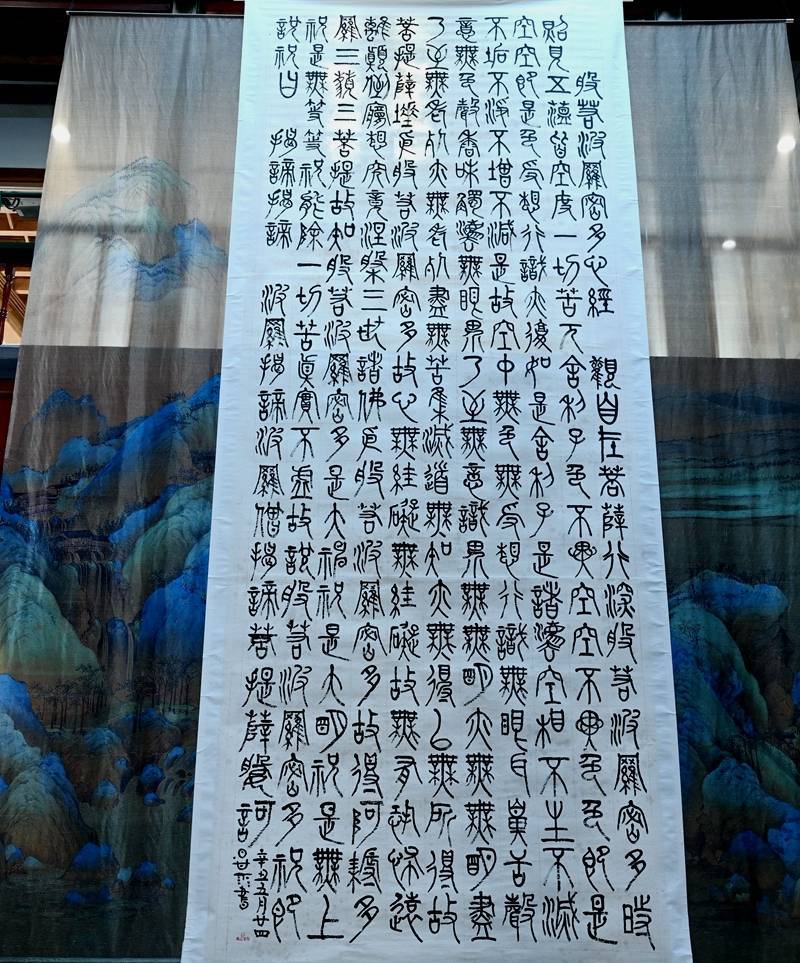 般若波羅密多心經 觀自在菩薩行深般若波羅密多時
照見五蘊皆空度一切苦厄舍利子色不異空空不異色色即是
空空即是色受想行識亦復如是舍利子是諸法空相不生不滅
不垢不淨不增不減是故空中無色無受想行識無眼耳鼻舌聲
意無色聲香味觸法無眼界乃至無意識界無無明亦無無明盡
乃至無老死亦無老死盡無苦集滅道無知亦無得以無所得故
菩提薩埵依般若波羅密多故心無絓礙無絓礙故無有恐怖遠
離顛倒夢想究竟涅槃三世諸佛依般若波羅密多故得阿耨多
羅三藐三菩提故知般若波羅密多是大神祝是大明祝是無上
祝是無等等祝能除一切苦真實不虛故說般若波羅密多祝即
說祝曰 揭諦揭諦 波羅揭諦波羅僧揭諦菩提薩婆訶
辛丑五月廿四
書